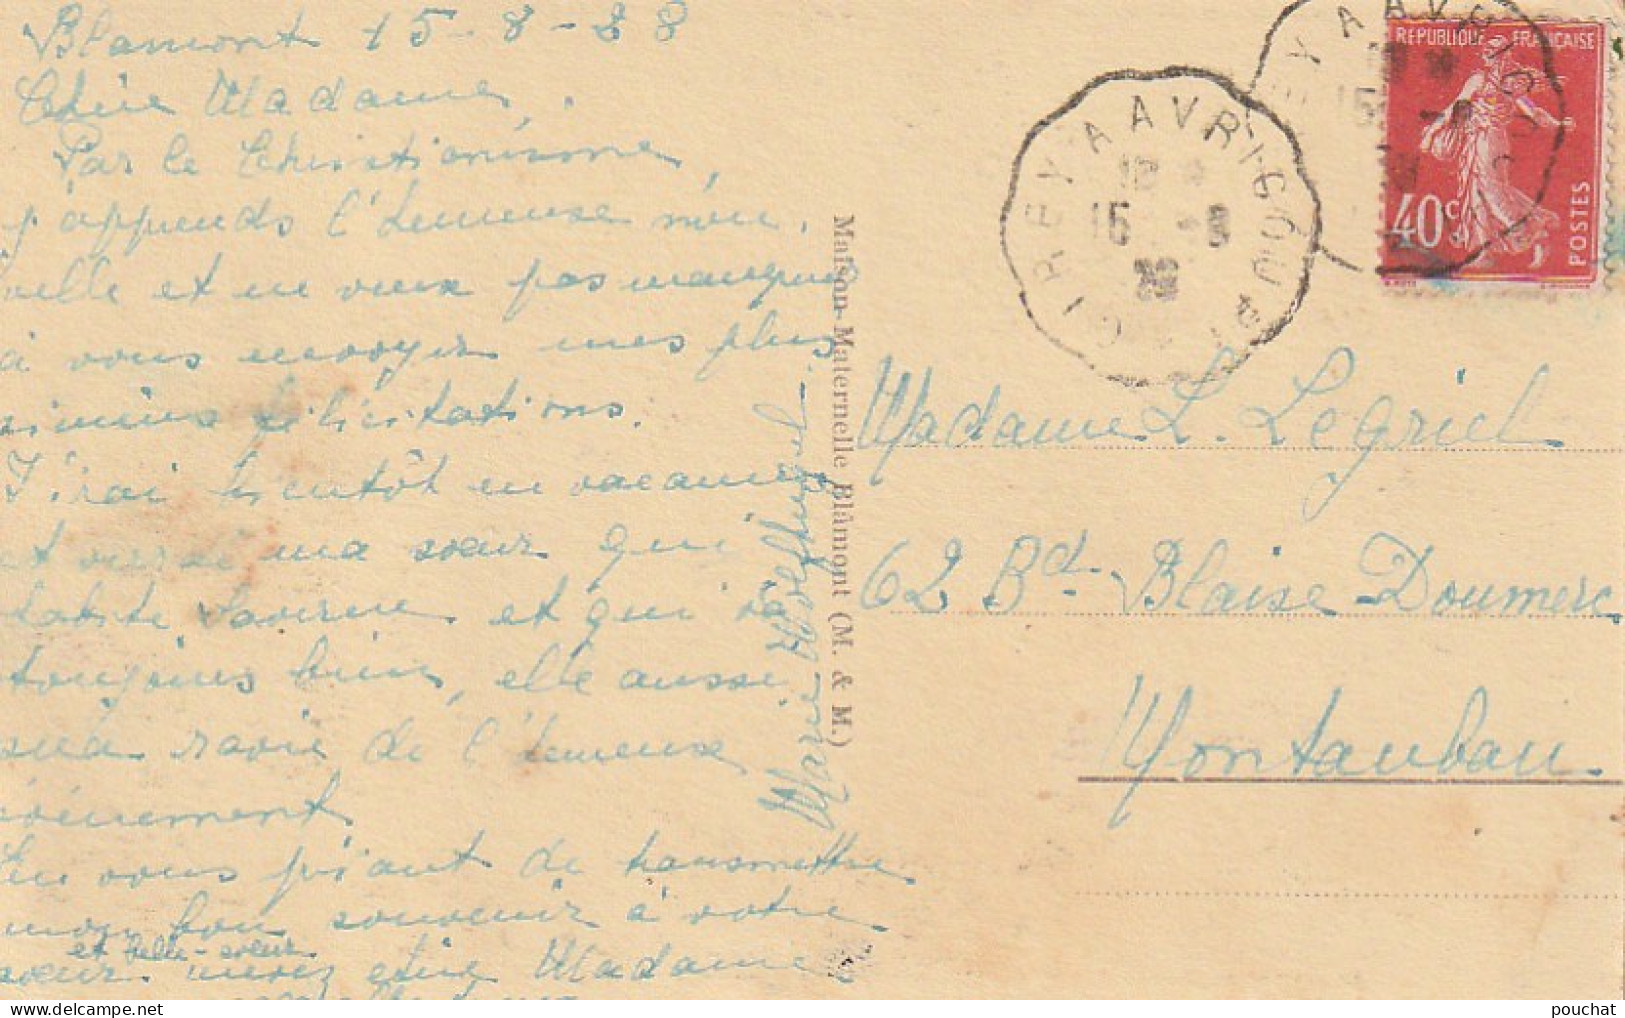 Blamont 15-8-28
Chère Madame,
Par le Christianisme,
j'apprends l'heureuse nou-
velle et ne veux pas manquer
à vous envoyer mes plus
sincères félicitations.
J'irai bientôt en vacances
et verrai ma sœur qui
habite Saverne et qui va
toujours bien, elle aussi
sera ravie de l'heureux
événement.
En vous priant de transmettre
mon bon souvenir à votre
et belle-sœur
sœur chère Madame
Marie
Maison Maternelle Blâmont (M. & M.)
CIREY A AVRICOURT
15 -8
28
REPUBLIQUE FRANÇAISE
40c
POSTES
Madame L. Legriel
62 Bd. Blaise-Doumerc
Montauban
pouchat